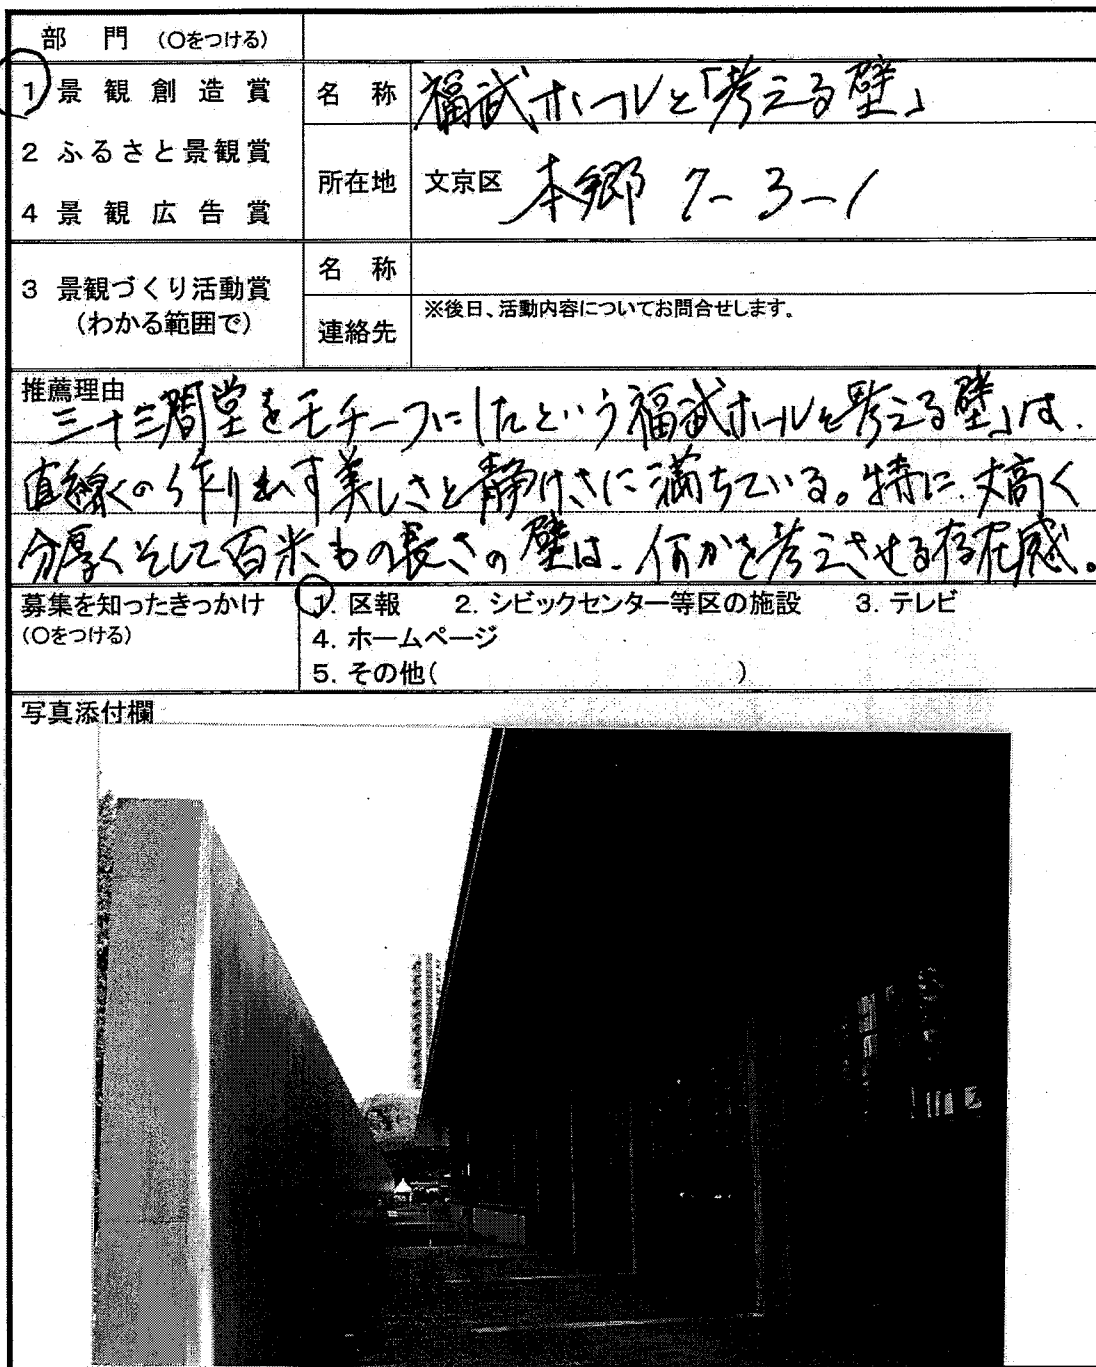 部 門 (○をつける)
1 景観創造賞
2 ふるさと景観賞
4 景観広告賞
名 称 福武ホールと「考える壁」
所在地 文京区 本郷 7-3-1
3 景観づくり活動賞
(わかる範囲で)
名 称
連絡先 ※後日、活動内容についてお問合せします。
推薦理由
三十三間堂をモチーフにしたという福武ホールと「考える壁」は、
直線の作り出す美しさと静けさに満ちている。特に、丈高く
分厚くそして百米もの長さの壁は、何かを考えさせる存在感。
募集を知ったきっかけ
(○をつける)
1. 区報 2. シビックセンター等区の施設 3. テレビ
4. ホームページ
5. その他( )
写真添付欄